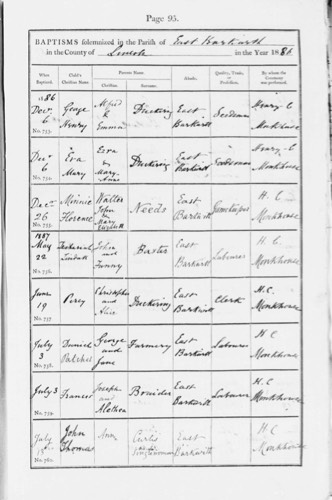 Page 95.
BAPTISMS solemnized in the Parish of East Barkwith
in the County of Lincoln in the Year 188
When Baptized. Child's Christian Name. Parents Name. Abode. Quality, Trade, or Profession. By whom the Ceremony was performed.
Christian. Surname.
1886
Decr 6 George Henry Alfred & Emma Duckering East Barkwith Seedsman Henry C Monkhouse
No. 733.
Decr 6 Eva Mary Ezra & Mary Anne Duckering East Barkwith Seedsman Henry C Monkhouse
No. 734.
Decr 26 Minnie Florence Walter John & Mary Needs East Barkwith H. C. Monkhouse
No. 735.
1887
May 22 John and Fanny Baxter East Barkwith Labourer H. C. Monkhouse
No. 736.
June 19 Percy Christopher and Alice Duckering East Barkwith Clerk H. C. Monkhouse
No. 737.
July 3 George and Jane East Barkwith Labourer H. C. Monkhouse
No. 738.
July 3 Frances Joseph and Alethea East Barkwith Labourer H. C. Monkhouse
No. 739.
July John Thomas Ann Curtis East Barkwith H. C. Monkhouse
No. 740.